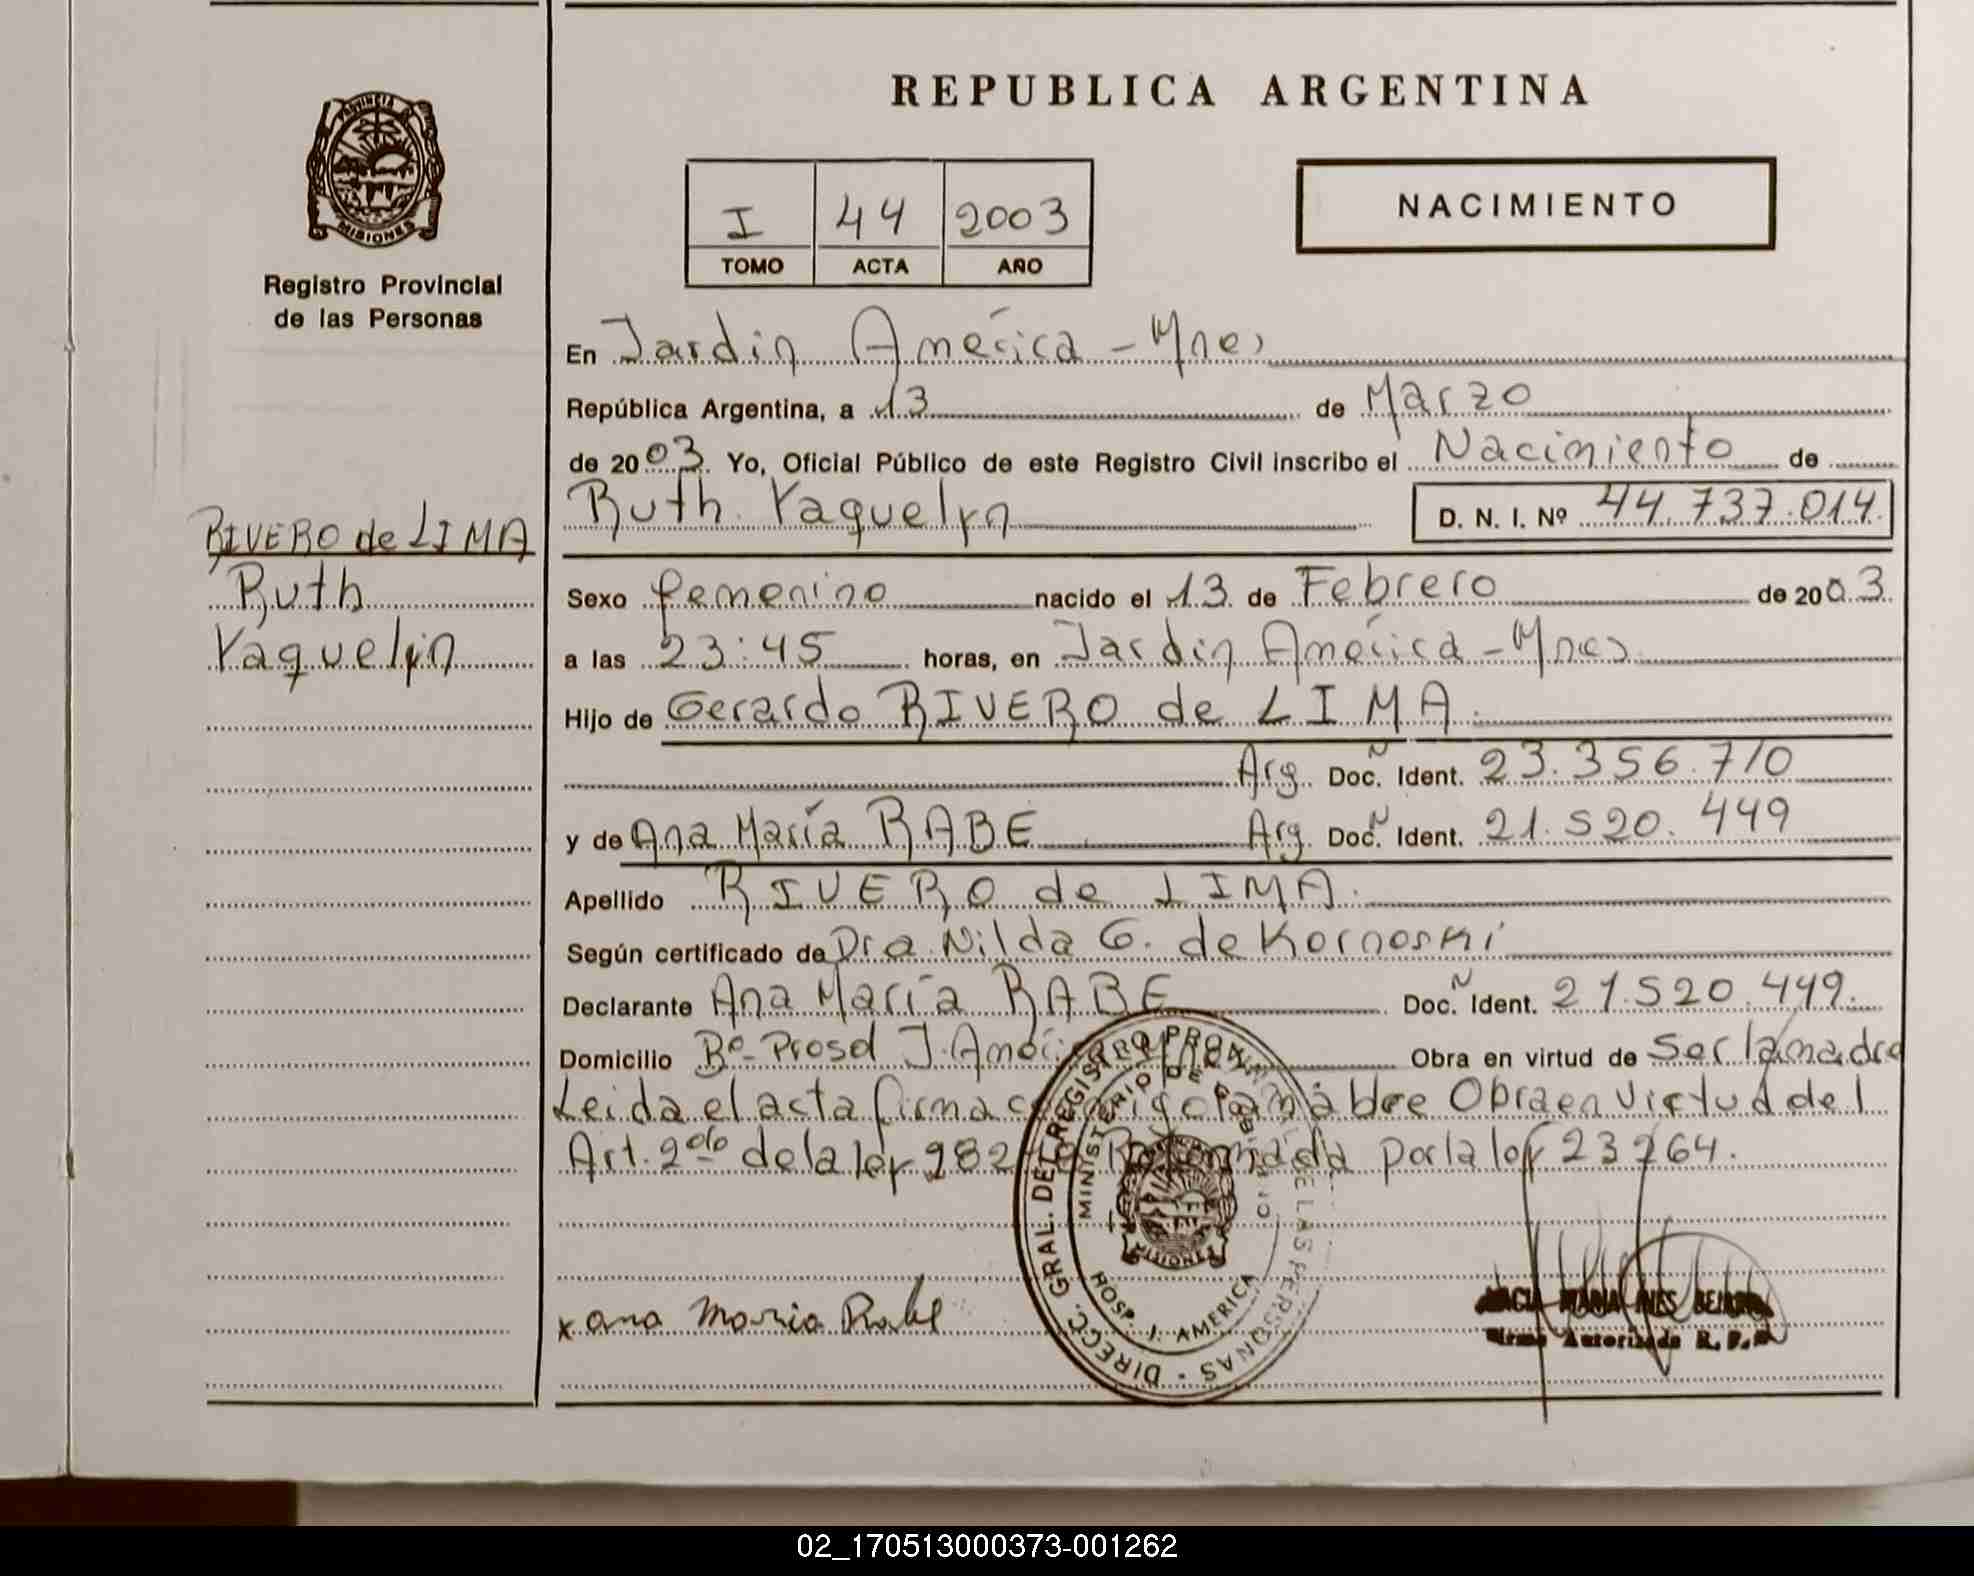 REPUBLICA ARGENTINA
PROVINCIA
MISIONES
Registro Provincial
de las Personas
I 44 2003
TOMO ACTA AÑO
NACIMIENTO
En Jardin América - Mnes
República Argentina, a 13 de Marzo
de 2003. Yo, Oficial Público de este Registro Civil inscribo el Nacimiento de
Ruth Yaquelyn D. N. I. Nº 44.737.014.
RIVERO de LIMA
Ruth
Yaquelyn
Sexo femenino nacido el 13 de Febrero de 2003.
a las 23:45 horas, en Jardin América - Mnes
Hijo de Gerardo RIVERO de LIMA.
Arg. Doc. Ident. 23.356.710
y de Ana María RABE Arg. Doc. Ident. 21.520.449
Apellido RIVERO de LIMA.
Según certificado de Dra. Nilda G. de Kornoski
Declarante Ana María RABE Doc. Ident. 21.520.449.
Domicilio Bº Prosol J. Obra en virtud de Ser la madre
Leida el acta firma Obra en virtud del
Art. 2do de la ley por la ley 23264.
DIRECC. GRAL. DEL REGISTRO PROV. DE LAS PERSONAS
MINISTERIO DE GOBIERNO
HOSP. J. AMERICA
MISIONES
x ana Maria Rabe
MARIA INES
Firma Autorizada R. P. P.
02_170513000373-001262